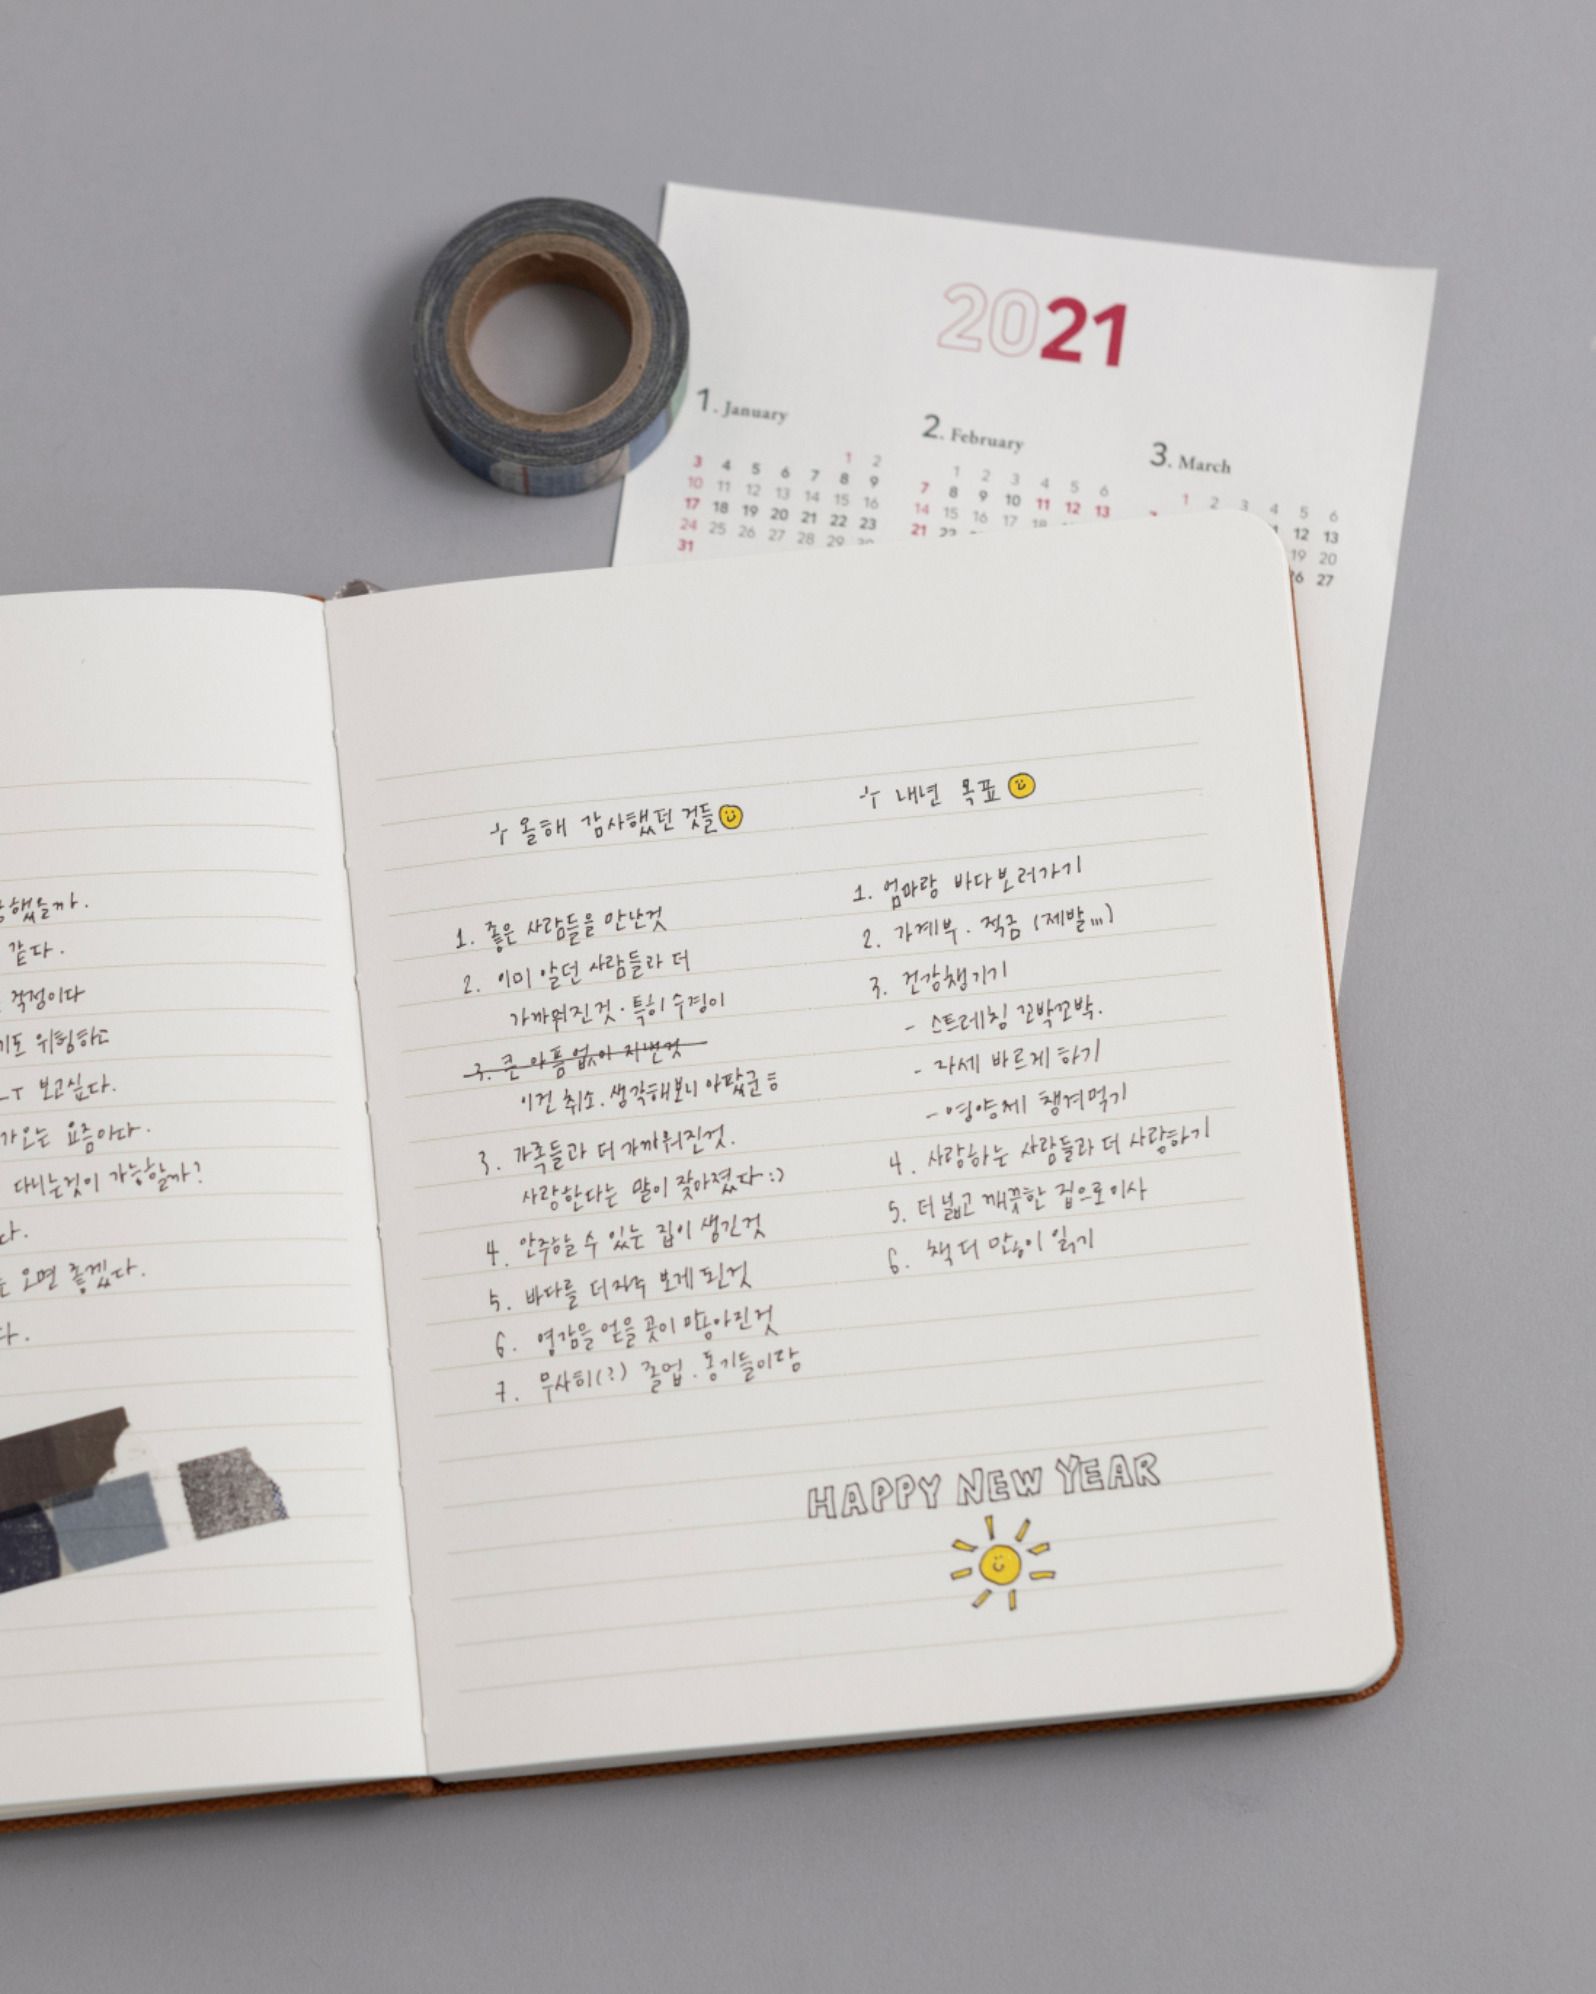 2021
1. January
1 2
3 4 5 6 7 8 9
10 11 12 13 14 15 16
17 18 19 20 21 22 23
24 25 26 27 28 29 30
31
2. February
1 2 3 4 5 6
7 8 9 10 11 12 13
14 15 16 17 18
21 22
3. March
1 2 3 4 5 6
12 13
19 20
26 27
했을까.
같다.
걱정이다
기도 위험하고
보고싶다.
가오는 요즘이다.
다니는것이 가능할까?
다.
오면 좋겠다.
다.
올해 감사했던 것들
1. 좋은 사람들을 만난것
2. 이미 알던 사람들과 더
가까워진것. 특히 수경이
3. 큰 아픔 없이 지낸것
이건 취소. 생각해보니 아팠군ㅎ
3. 가족들과 더 가까워진것.
사랑한다는 말이 잦아졌다 :)
4. 안주할 수 있는 집이 생긴것
5. 바다를 더 자주 보게 된것
6. 영감을 얻을 곳이 많아진것
7. 무사히(?) 졸업. 동기들이랑
내년 목표
1. 엄마랑 바다보러가기
2. 가계부. 적금 (제발...)
3. 건강챙기기
- 스트레칭 꼬박꼬박.
- 자세 바르게 하기
- 영양제 챙겨먹기
4. 사랑하는 사람들과 더 사랑하기
5. 더 넓고 깨끗한 집으로 이사
6. 책 더 많이 읽기
HAPPY NEW YEAR